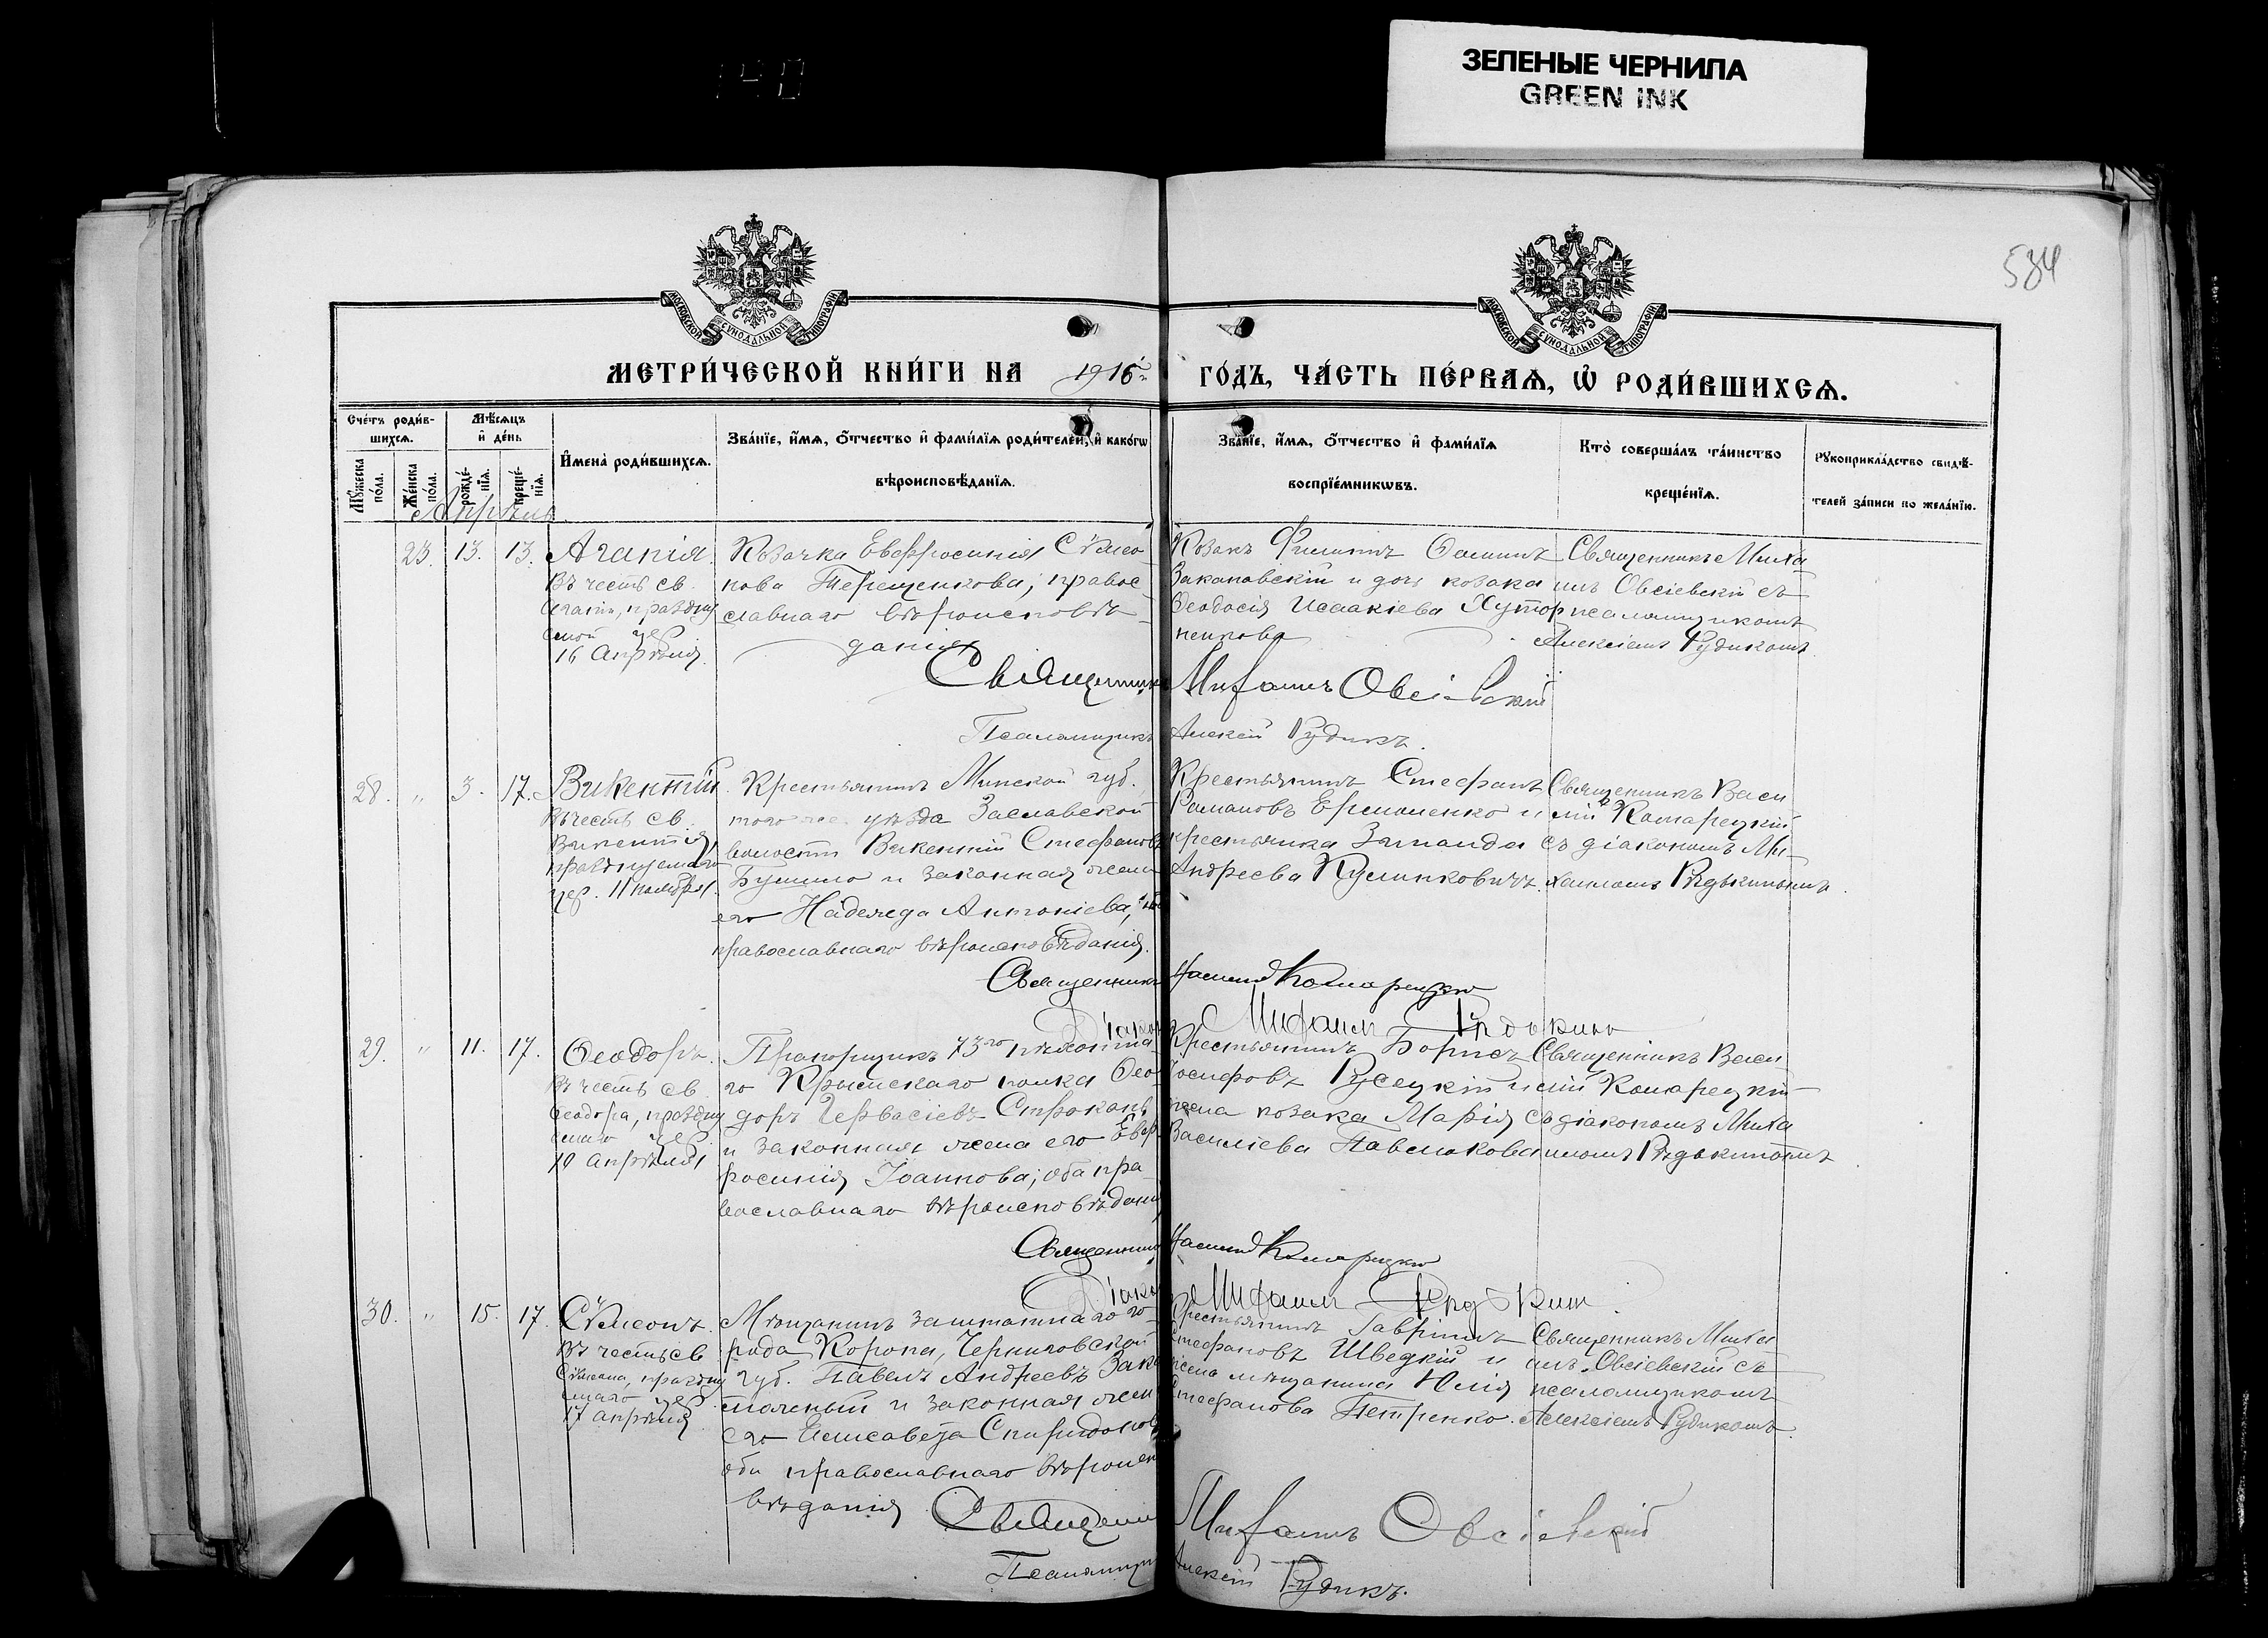 ЗЕЛЕНЫЕ ЧЕРНИЛА
GREEN INK
584
МОСКОВСКОЙ СУНОДАЛЬНОЙ ТИПОГРАФІИ
МОСКОВСКОЙ СУНОДАЛЬНОЙ ТИПОГРАФІИ
МЕТРИ́ЧЕСКОЙ КНИ́ГИ НА 1916 ГО́ДЪ, ЧА́СТЬ ПЕ́РВАѦ, Ѽ РОДИ́ВШИХСѦ.
Сче́тъ роди́в-
шихсѧ.
Мѣ́сѧцъ
и҆ де́нь
Мꙋ́жеска
по́ла.
Же́нска
по́ла.
рожде́-
нїѧ.
креще́-
нїѧ.
И҆мена̀ роди́вшихсѧ.
Зва́нїе, и҆́мѧ, ѻ҆́тчество и҆ фами́лїѧ роди́телей, и҆ како́гѡ
вѣроисповѣ́данїѧ.
Зва́нїе, и҆́мѧ, ѻ҆́тчество и҆ фами́лїѧ
воспрїе́мникѡвъ.
Кто̀ соверша́лъ та́инство
креще́нїѧ.
Рꙋкоприкла́дство свидѣ́-
телей за́писи по жела́нїю.
Апрѣль
23. 13. 13. Агапія.
Въ честь св.
Агапіи, праздну
емой чер.
16 Апрѣля.
Козачка Евфросинія Сѵмео-
нова Терещенкова; правос-
славнаго вѣроисповѣ-
данія
Козакъ Филиппъ Ѳоминъ
Закановскій и дочь козака
Ѳеодосія Исаакіева Хутор
ненкова
Священникъ Миха
илъ Овсіевскій съ
псаломщикомъ
Алексіемъ Рудикомъ.
Священникъ Михаилъ Овсіевскій
Псаломщикъ Алексій Рудикъ.
28. " 3. 17. Викентій.
Въ честь св.
Викентія,
празднуемаго
чер. 11 ноября.
Крестьянинъ Минской губ.
того же уѣзда Заславской
волости Викентій Стефановъ
и законная жена
его Надежда Антоніева,
православнаго вѣроисповѣданія.
Крестьянинъ Стефанъ
Романовъ Ермоленко и
крестьянка Зинаида
Андреева Кулинковичъ.
Священникъ Васи
лій Комарецкій
съ діакономъ Ми-
хаиломъ Рѣдькинымъ.
Священникъ Василій Комарецкій
Діаконъ Михаилъ Рѣдькинъ
29. " 11. 17. Ѳеодоръ.
Въ честь св.
Ѳеодора, праздну
емаго чер.
19 Апрѣля
Прапорщикъ 73го пѣхотна-
го Крымскаго полка Ѳео-
доръ Гервасіевъ Строкань
и законная жена его Евф-
росинія Іоаннова; оба пра-
вославнаго вѣроисповѣданія
Крестьянинъ Борисъ
Іосифовъ Русецкій и
жена козака Марія
Василіева Павлюкова
Священникъ Васи
лій Комарецкій
съ діакономъ Миха
иломъ Рѣдькинымъ
Священникъ Василій Комарецкій
Діаконъ Михаилъ Рѣдькинъ.
30. " 15. 17. Сѵмеонъ.
Въ честь св.
Сѵмеона, праздну
емаго чер.
17 апрѣля
Мѣщанинъ заштатнаго го-
рода Коропа, Черниговской
губ. Павелъ Андреевъ
и законная жена
его Елисавета Спиридонова
оба православнаго вѣроиспо
вѣданія
Крестьянинъ Гавріилъ
Стефановъ Шведкій и
жена мѣщанина Юлія
Стефанова Петренко.
Священникъ Миха
илъ Овсіевскій съ
псаломщикомъ
Алексіемъ Рудикомъ.
Священникъ Михаилъ Овсіевскій
Псаломщикъ Алексій Рудикъ.